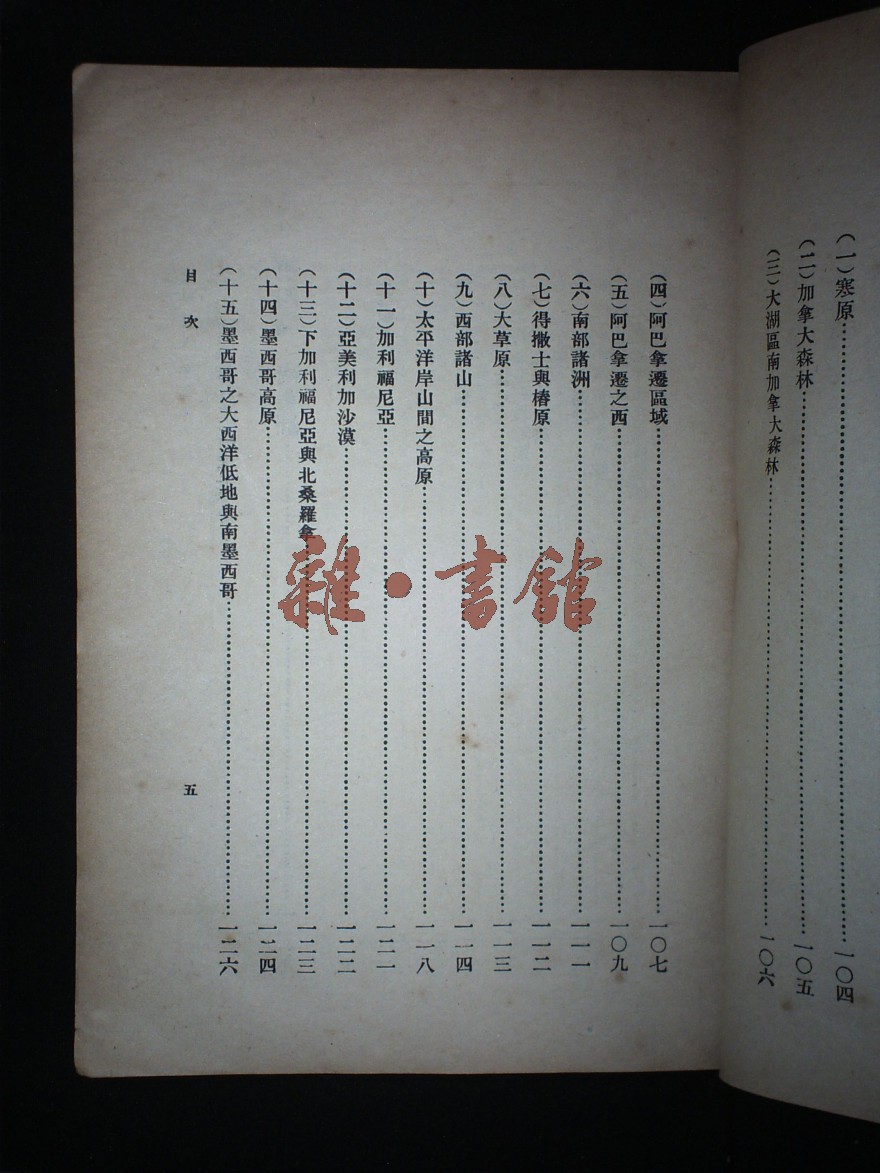 （一）寒原……一〇四
（二）加拿大森林……一〇五
（三）大湖區南加拿大森林……一〇六
（四）阿巴拿遷區域……一〇七
（五）阿巴拿遷之西……一〇九
（六）南部諸洲……一一一
（七）得撒士與椿原……一一二
（八）大草原……一一三
（九）西部諸山……一一四
（十）太平洋岸山間之高原……一一八
（十一）加利福尼亞……一二一
（十二）亞美利加沙漠……一二二
（十三）下加利福尼亞與北桑羅拿……一二三
（十四）墨西哥高原……一二四
（十五）墨西哥之大西洋低地與南墨西哥……一二六
目次 五
雜·書館